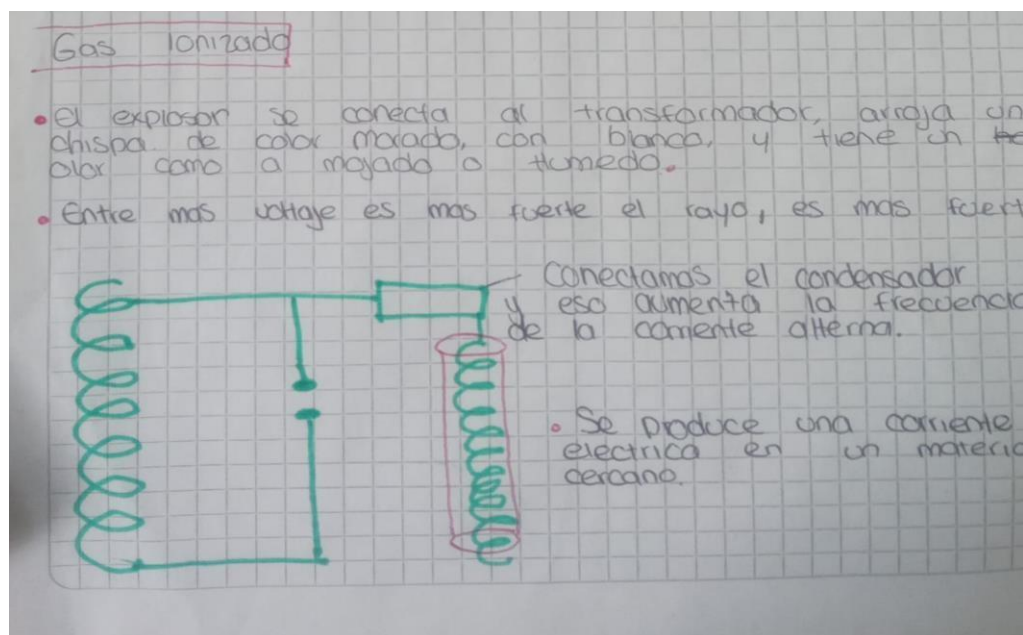 Gas Ionizado
• el exploson se conecta al transformador, arroja un
chispa de color morado, con blanco, y tiene un
olor como a mojado o Humedo.
• Entre mas voltaje es mas fuerte el rayo, es mas fuert
Conectamos el condensador
y eso aumenta la frecuencia
de la corriente alterna.
• Se produce una corriente
electrica en un materia
cercano.